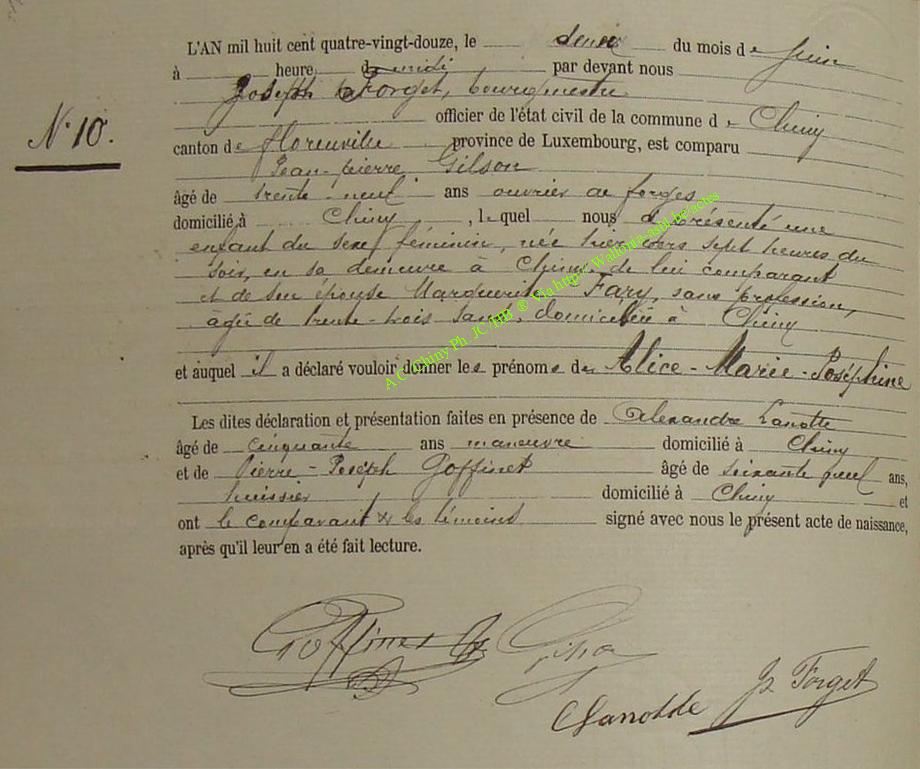 L'AN mil huit cent quatre-vingt-douze, le deux du mois de Juin
à heure de midi par devant nous
Joseph Forget, bourgmestre
officier de l'état civil de la commune de Chiny
N° 10.
canton de Florenville province de Luxembourg, est comparu
Jean-pierre Gilson
âgé de trente-neuf ans ouvrier de forges
domicilié à Chiny, lequel nous a présenté une
enfant du sexe féminin, née hier vers sept heures du
soir, en sa demeure à Chiny de lui comparant
et de son épouse Marguerite Fary, sans profession,
âgée de trente trois ans, domiciliée à Chiny
A C Chiny Ph. JC HM ® Via http:// Wallonia-asbl.be/actes
et auquel il a déclaré vouloir donner les prénoms de Alice-Marie-Joséphine
Les dites déclaration et présentation faites en présence de Alexandre Lanotte
âgé de cinquante ans manœuvre domicilié à Chiny
et de Pierre-Joseph Goffinet âgé de soixante neuf ans,
huissier domicilié à Chiny et
ont le comparant & les témoins signé avec nous le présent acte de naissance,
après qu'il leur en a été fait lecture.
Goffinet
J. Forget